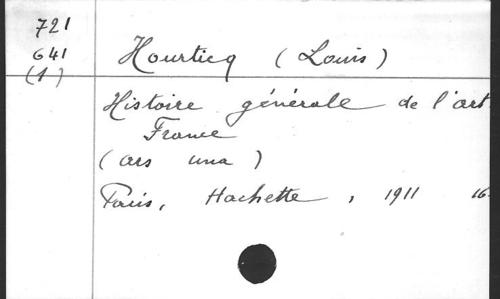 721
641
(1)
Hourticq (Louis)
Histoire générale de l'art
France
(ars una)
Paris, Hachette, 1911 16